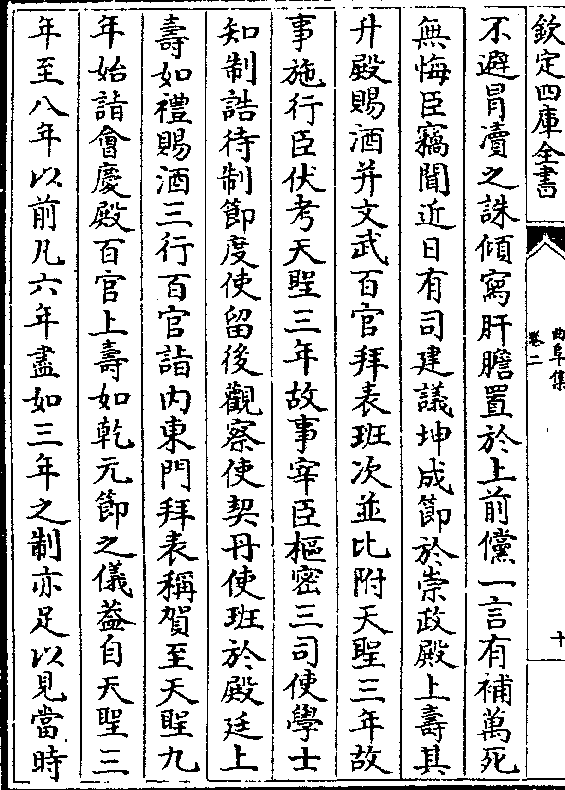 欽定四庫全書
曲阜集
卷二
十
不避冒瀆之誅傾寫肝膽置於上前儻一言有補萬死
無悔臣竊聞近日有司建議坤成節於崇政殿上壽其
升殿賜酒并文武百官拜表班次並比附天聖三年故
事施行臣伏考天聖三年故事宰臣樞密三司使學士
知制誥待制節度使留後觀察使契丹使班於殿廷上
壽如禮賜酒三行百官詣内東門拜表稱賀至天聖九
年始詣會慶殿百官上壽如乾元節之儀葢自天聖三
年至八年以前凡六年盡如三年之制亦足以見當時